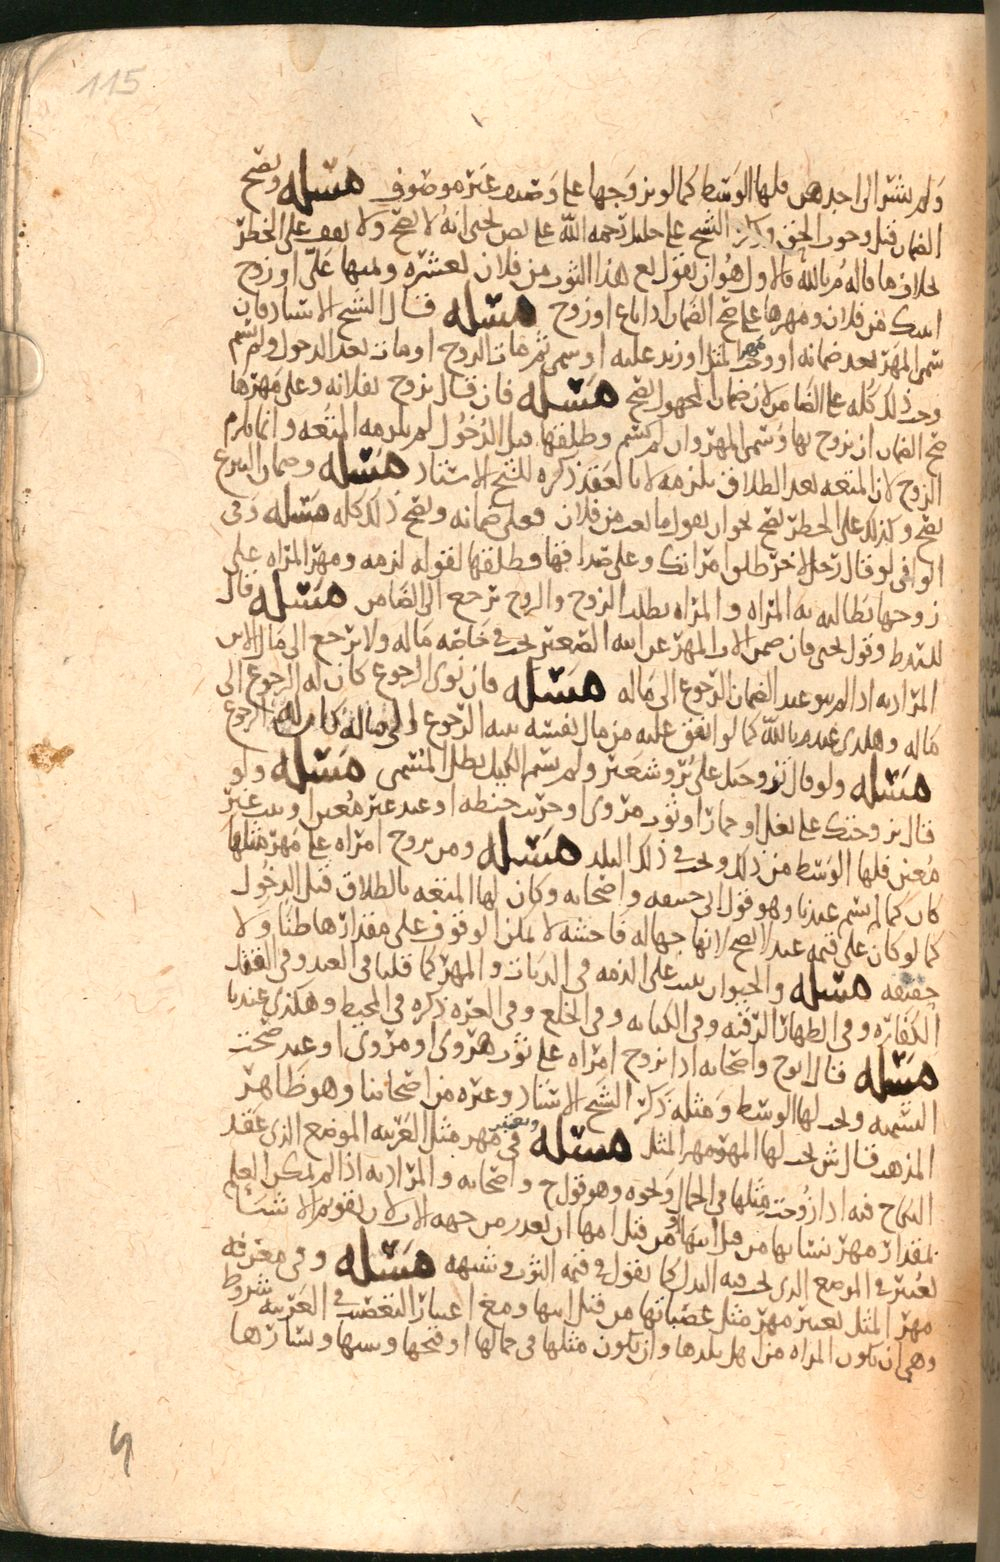 115
ولم يشر الى احدهن فلها الوسط كما لو تزوجها على وصيف غير موصوف مسله ويصح
الضمان قبل وجوب الحق وذكر الشيخ علي خليل رحمه الله على اصل يحيى انه لا يصح ولا يقف على الخطر
بخلاف ما قاله م بالله فالاول هو ان يقول بع هذا الثوب من فلان بعشرة وثمنها علي او زوج
ابنتك من فلان ومهرها علي صح الضمان اذا باع او زوج مسله قال الشيخ الاستاد فان
سمى المهر بعد ضمانه او وجب مهر المثل او زيد عليه او سمى ثم مات الزوج او مات بعد الدخول ولم يسم
وجب ذلك كله على الضامن لان ضمان المجهول يصح مسله فان قال تزوج بفلانه وعلي مهرها
صح الضمان ان تزوج بها وسمى المهر وان لم يسم وطلقها قبل الدخول لم يلزمه المتعه وانما يلزم
الزوج لان المتعه بعد الطلاق يلزمه لا بالعقد ذكره الشيخ الاستاد مسله وضمان التبرع
يصح وكذلك على الخطر يصح نحو ان يقول ما بعت من فلان فعلي ضمانه ويصح ذلك كله مسله وفي
الوافي لو قال رجل لاخر طلق امراتك وعلي صداقها وطلقها لقوله لزمه ومهر المراه على
زوجها تطالبه به المراه والمراه تطلب الزوج والزوج يرجع الى الضامن مسله قال
للشرط وقول يحيى فان ضمن الاب المهر عن ابنه الصغير يجب في خاصه ماله ولا يرجع الى مال الابن
المراد به اذا لم ينو عند الضمان الرجوع الى ماله مسله فان نوى الرجوع كان له الرجوع الى
ماله وهكذى عند م بالله كما لو انفق عليه من مال نفسه بنيه الرجوع الى ماله كان له الرجوع
مسله ولو قال تزوجتك على بر وشعير ولم يسم الكيل بطل المسمى مسله ولو
قال تزوجتك على بغل او حمار او ثوب مروي او جريب حنطه او عبد غير معين او بيت غير
معين فلها الوسط من ذلك ويجب في ذلك البلد مسله ومن تزوج امراه على مهر مثلها
كان كما لم يسم عندنا وهو قول ابي حنيفه واصحابه وكان لها المتعه بالطلاق قبل الدخول
كما لو كان على قيمه عبد لا يصح لانها جهاله فاحشه لا يمكن الوقوف على مقدارها ظنا ولا
حقيقه مسله والحيوان يثبت على الذمه في الديات والمهر كما قلنا في العبد وفي القتل
الكفاره وفي الظهار الرقبه وفي الكتابه وفي الخلع وفي الغره ذكره في المحيط وهكذى عندنا
مسله قال ابو ح واصحابه اذا تزوج امراه على ثوب هروي او مروي او عبد صحت
التسميه ويجب لها الوسط ومثله ذكر الشيخ الاستاد وغيره من اصحابنا وهو ظاهر
المذهب قال ش يجب لها المهر مهر المثل مسله ويعتبر في مهر مثل الغريبه الموضع الذي عقد
النكاح فيه اذا زوجت مثلها في الجمال ونحوه وهو قول ح واصحابه والمراد به اذا لم يمكن العلم
بمقدار مهر نسائها من قبل ابيها او من قبل امها ان تعذر من جهه الاب لان تقويم الاشيا
يعتبر في الموضع الذي يجب فيه البدل كما يقول في قيمه الثوب وشبهه مسله وفي معرفه
مهر المثل يعتبر مهر مثل عصباتها من قبل ابيها ومع اعتبار التعصيب في الغريبه شروط
وهي ان تكون المراه من اهل بلدها وان تكون مثلها في جمالها او قبحها وسنها ويسارها